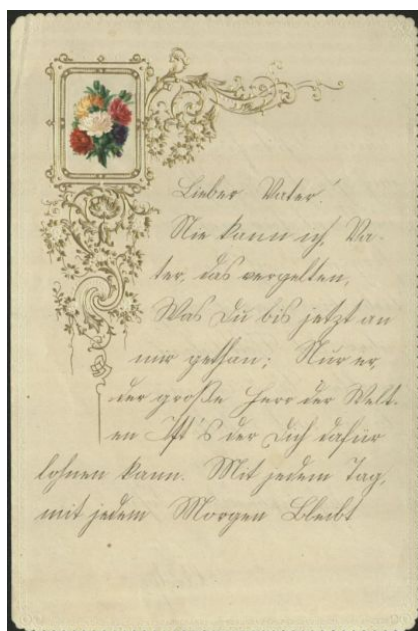 Lieber Vater!
Nie kann ich, Va-
ter, das vergelten,
Was Du bis jetzt an
mir gethan; Nur er,
der große Herr der Welt-
en Ist's der Dich dafür
lohnen kann. Mit jedem Tag,
mit jedem Morgen Bleibt